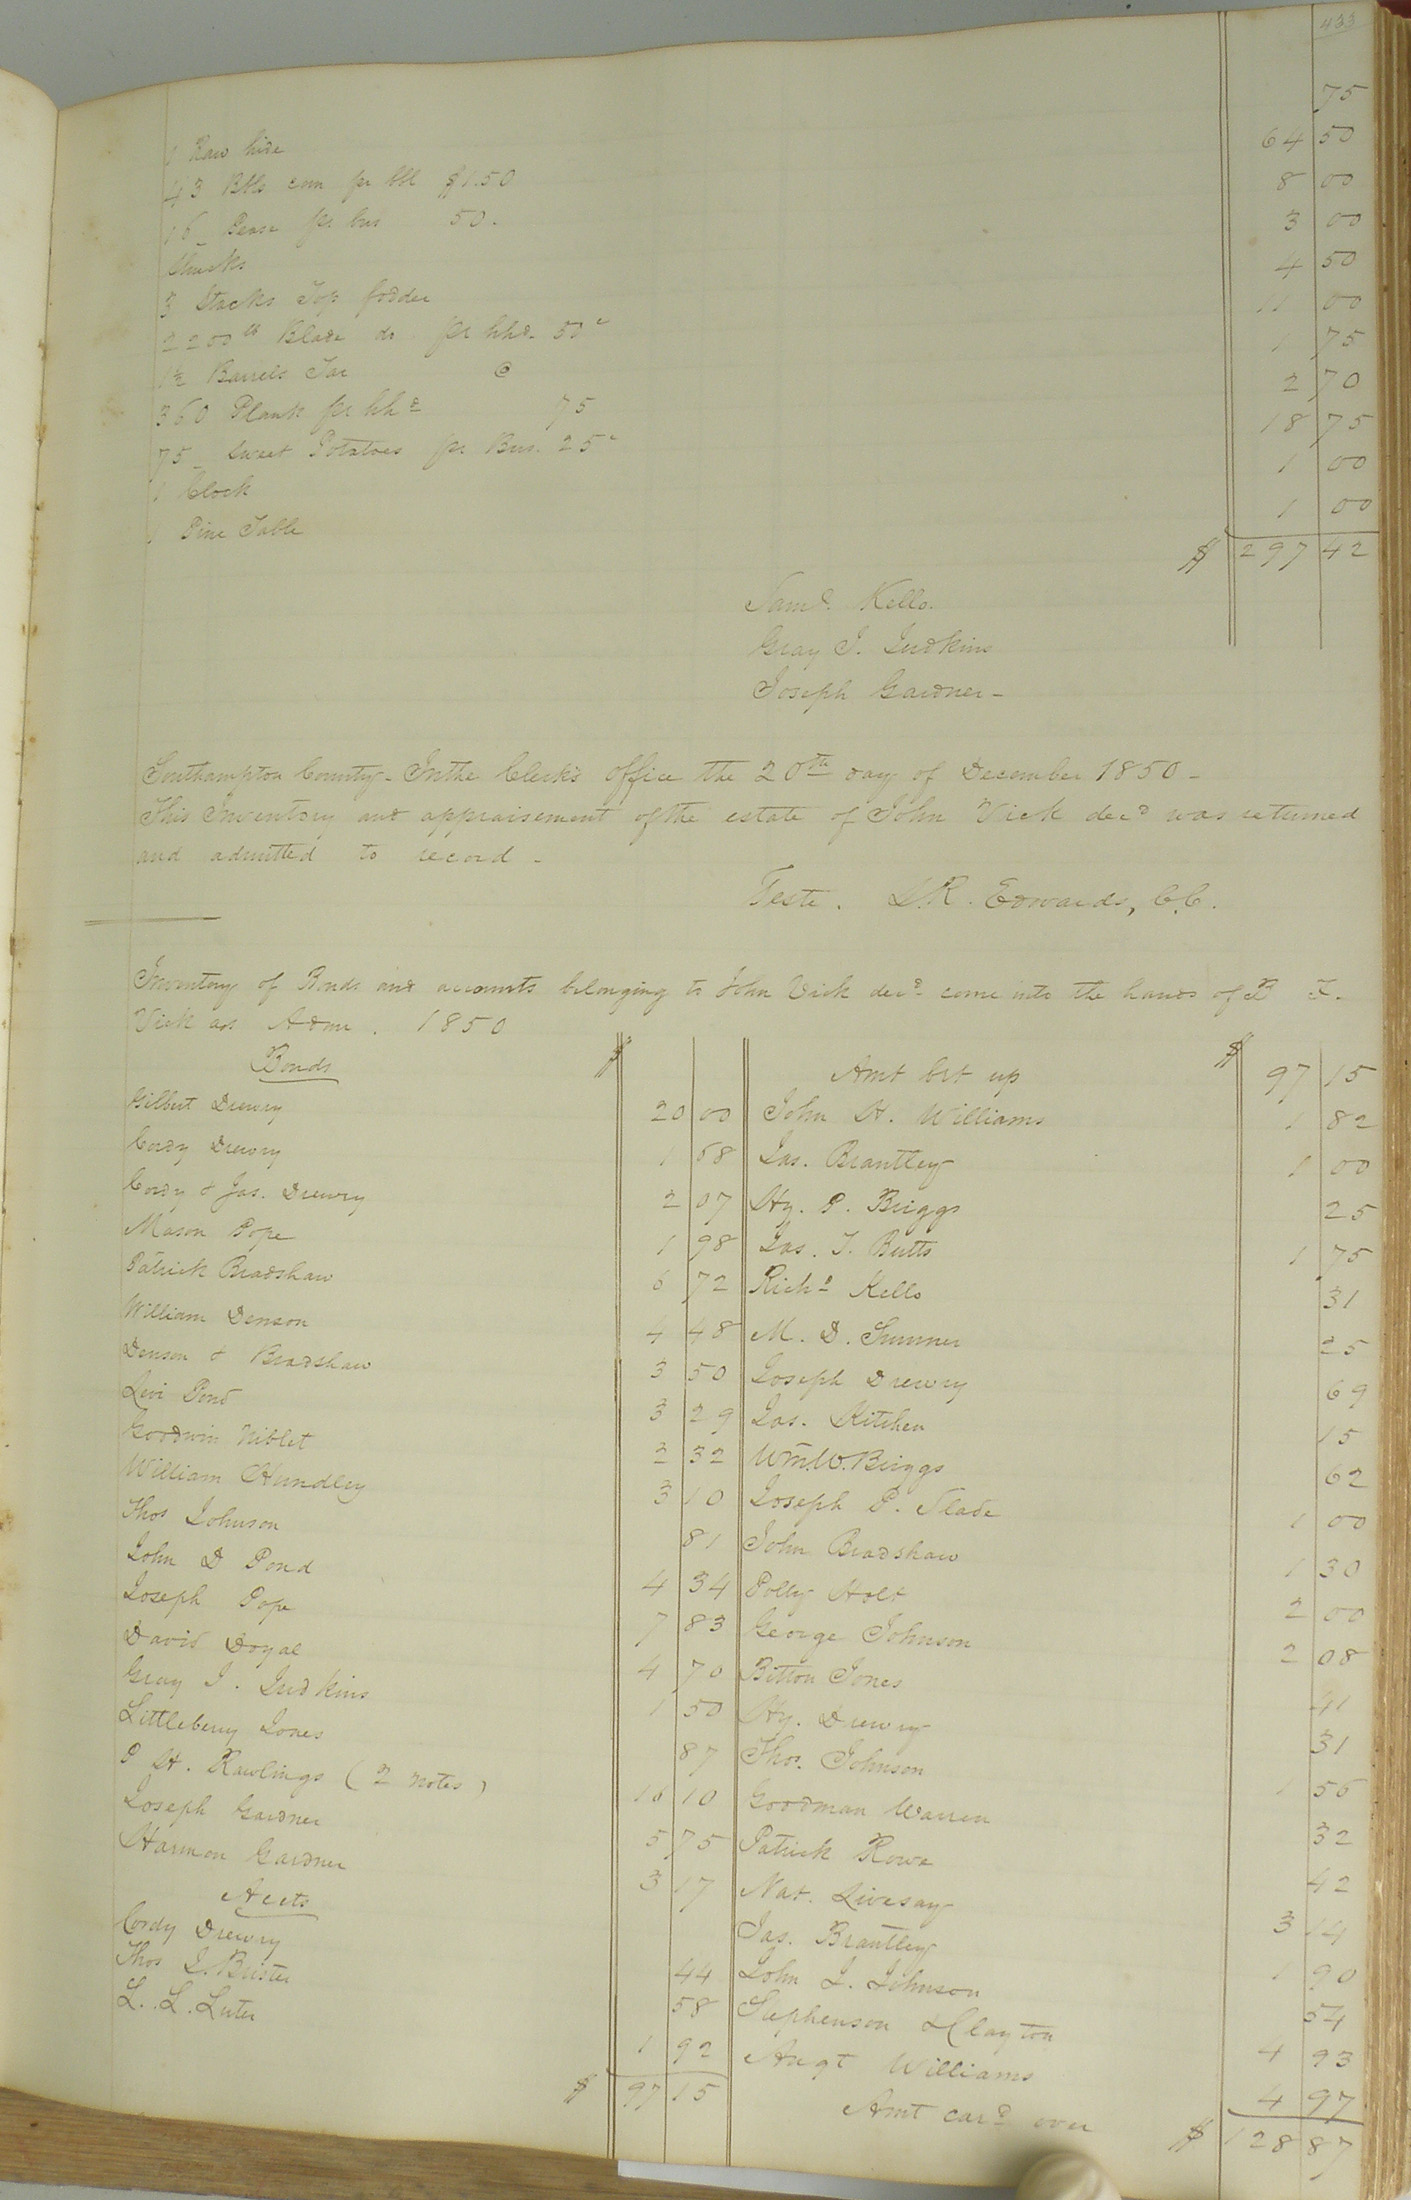 433
1 Raw hide 75
43 Bbls corn pr bbl $1.50 64 50
16 Pease pr bus 50. 8 00
Shucks 3 00
3 Stacks Top fodder 4 50
2200 lb Blade do pr hhd. 50c 11 00
1½ Barrels Tar @ 1 75
360 Plank pr hhd 75 2 70
75 Sweet Potatoes pr Bus. 25c 18 75
1 Clock 1 00
1 Pine Table 1 00
$ 297 42
Saml. Kello.
Gray J. Judkins
Joseph Gardner -
Southampton County - In the Clerk's office the 20th day of December 1850 -
This Inventory and appraisement of the estate of John Vick decd was returned
and admitted to record -
Teste. L.R. Edwards, C.C.
Inventory of Bonds and accounts belonging to John Vick decd. come into the hands of B F.
Vick as Admr. 1850
Bonds $
Gilbert Drewry 20 00
Cordy Drewry 1 68
Cordy & Jas. Drewry 2 07
Mason Pope 1 98
Patrick Bradshaw 6 72
William Denson 4 48
Denson & Bradshaw 3 50
Levi Pond 3 29
Goodwin Niblet 2 32
William Hundley 3 10
Thos Johnson 81
John D Pond 4 34
Joseph Pope 7 83
David Doyal 4 70
Gray J. Judkins 1 50
Littleberry Jones 87
P H. Rawlings (2 notes) 16 10
Joseph Gardner 5 75
Harmon Gardner 3 17
Accts
Cordy Drewry 44
Thos J. Brister 58
L. L. Luter 1 92
$ 97 15
Amt brt up $ 97 15
John H. Williams 1 82
Jas. Brantley 1 00
Hy. P. Briggs 25
Jas. T. Butts 1 75
Richd Kello 31
M. D. Sumner 25
Joseph Drewry 69
Jas. Kitchen 15
Wm. W. Briggs 62
Joseph P. Slade 1 00
John Bradshaw 1 30
Polly Holt 2 00
George Johnson 2 08
Britton Jones 41
Hy. Drewry 31
Thos. Johnson 1 56
Goodman Warren 32
Patrick Rowe 42
Nat. Livesay 3 14
Jas. Brantley 1 90
John J. Johnson 54
Stephenson & Clayton 4 93
Augt Williams 4 97
Amt card over $ 128 87